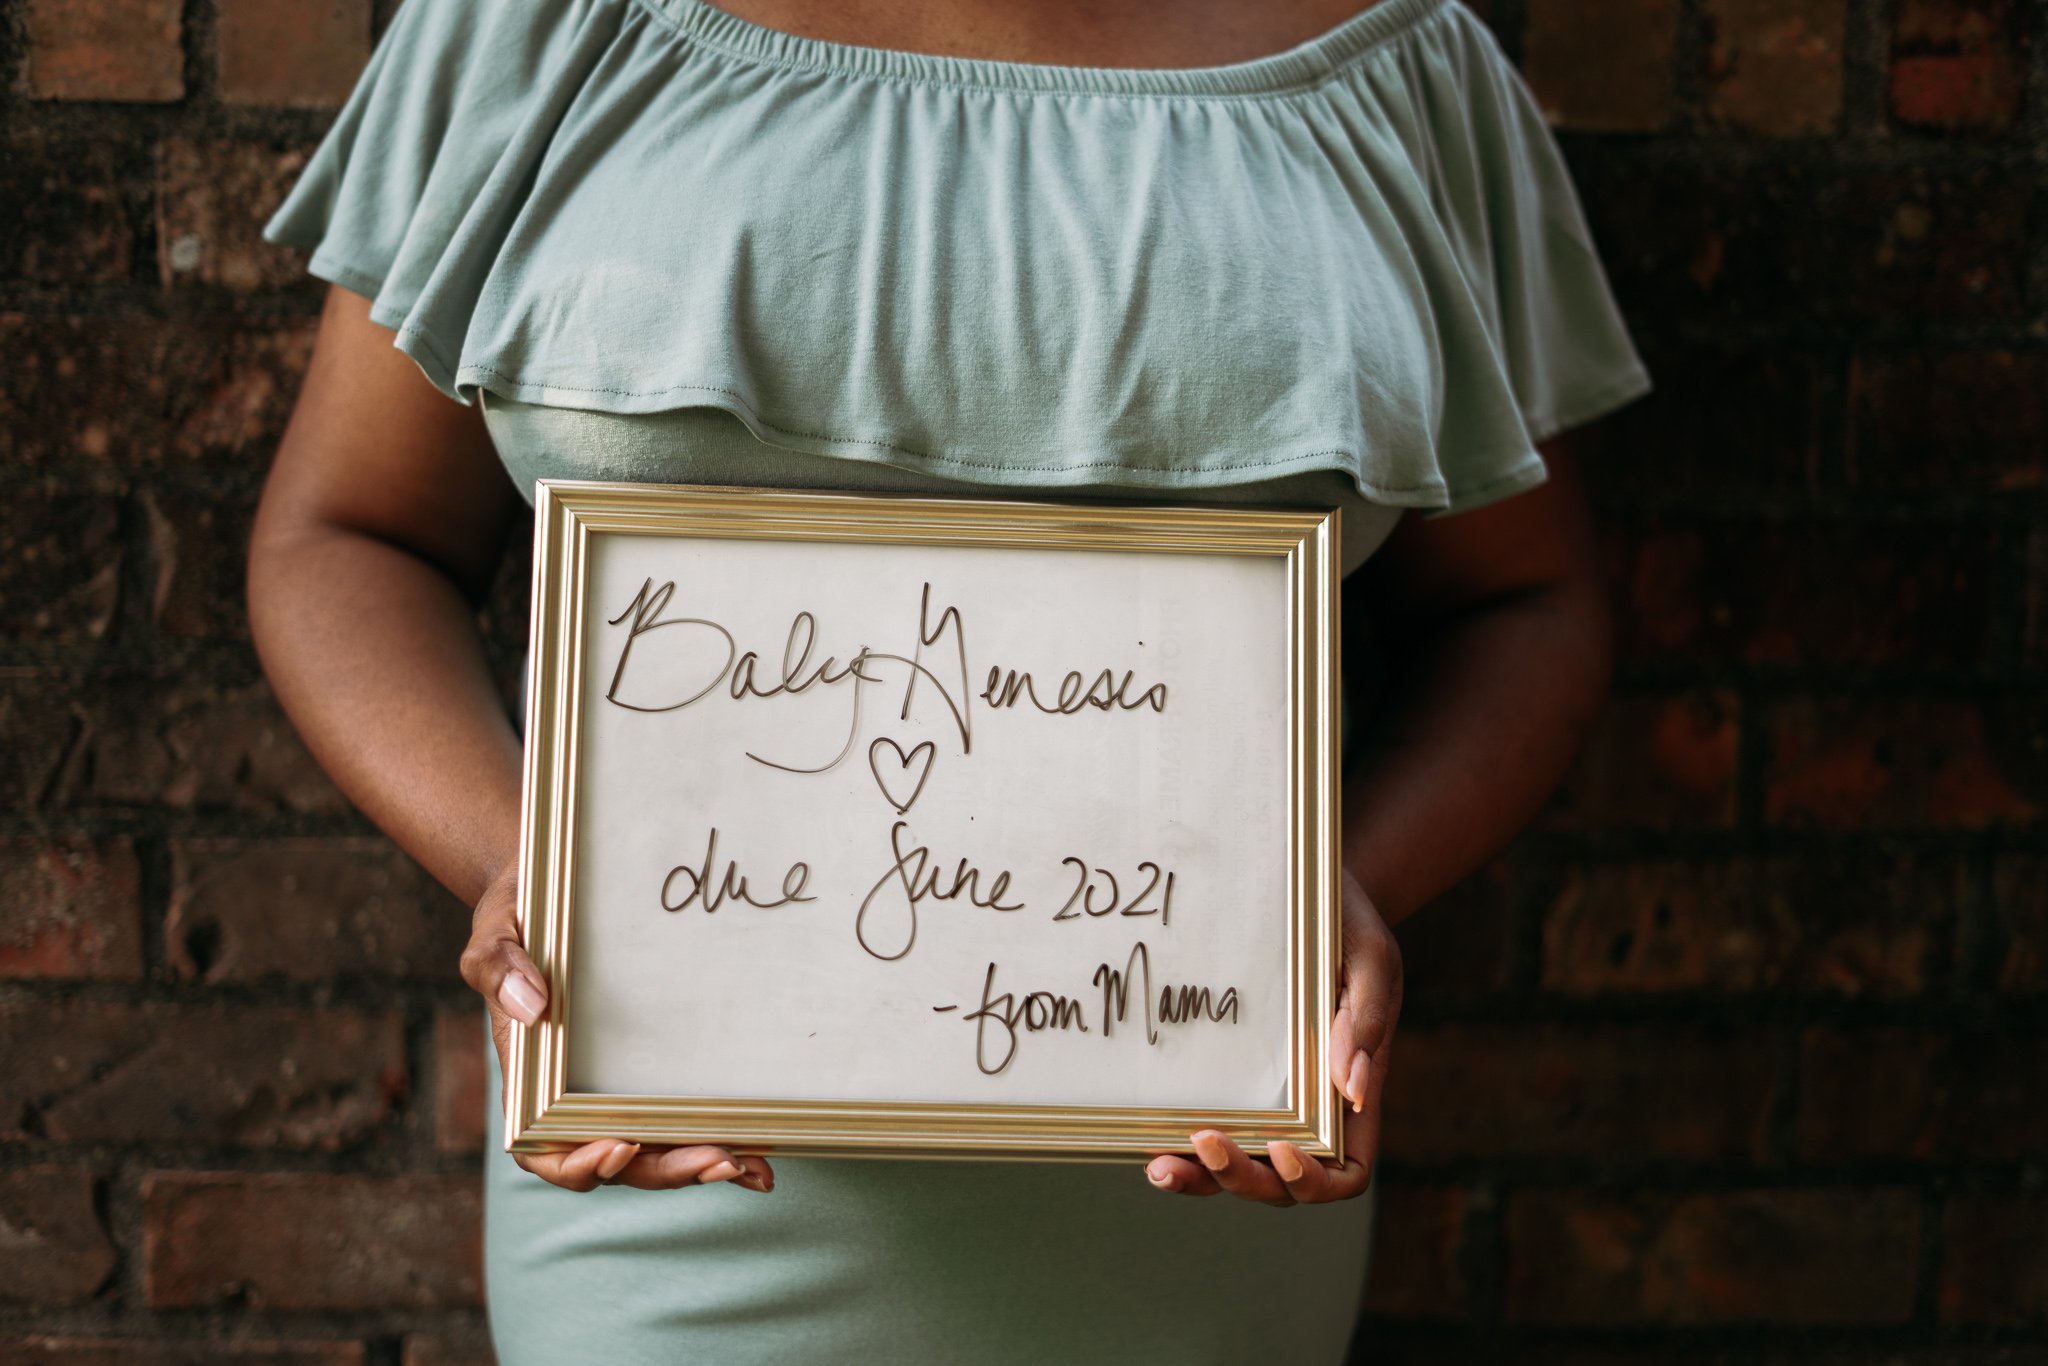 Baby Genesis
♡
due June 2021
- from Mama